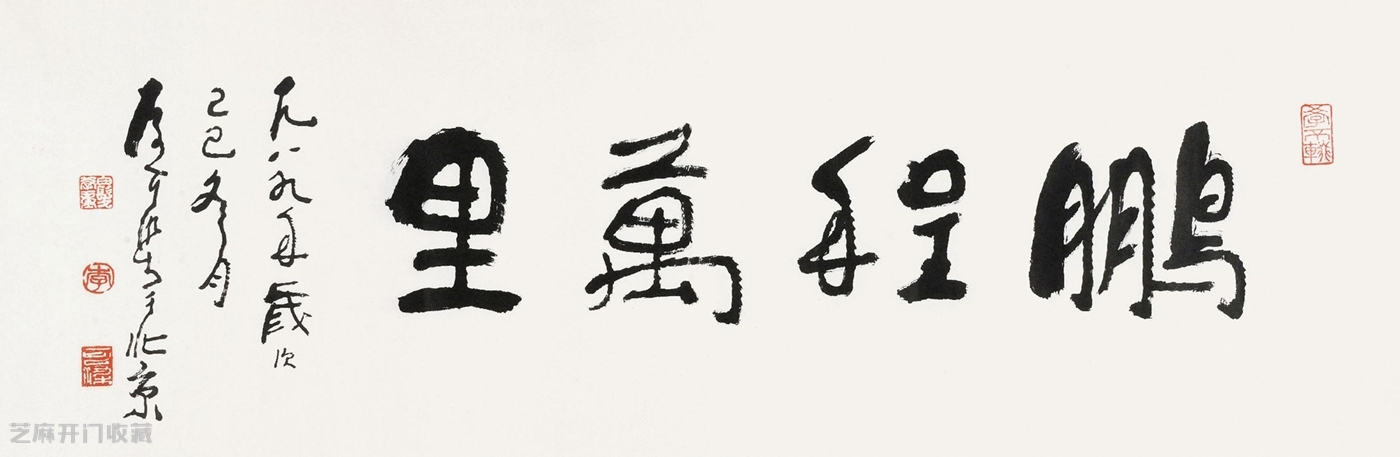 鵬程萬里
一九八九年歲次
己巳冬月
於北京
芝麻开门收藏